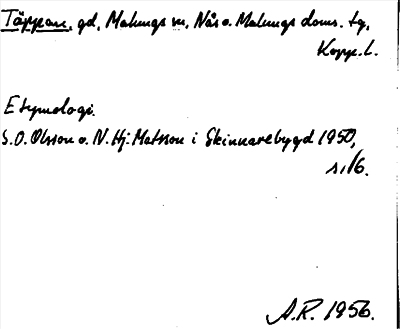 Täppan, gd, Malungs sn. Nås o. Malungs doms. tg,
Kopp. l.
Etymologi.
S.O. Olsson o. N. Hj. Matsson i Skinnarebygd 1950,
s. 16.
A.R. 1956.